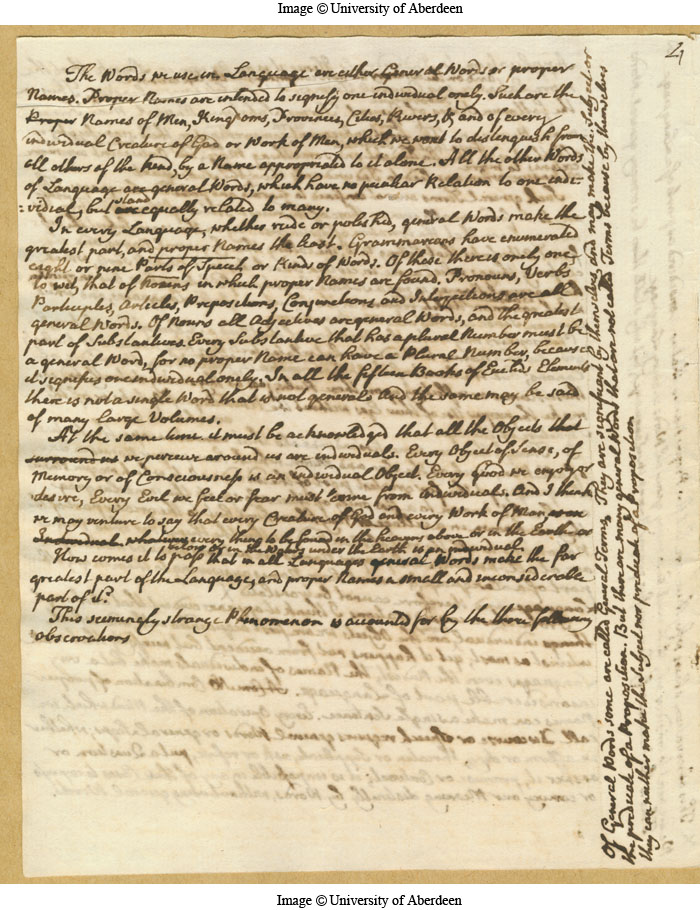 Image © University of Aberdeen
4
The Words we use in Language are either General Words or proper
Names. Proper Names are intended to signify one individual onely. Such are the
Proper Names of Men, Kingdoms, Provinces, Cities, Rivers, & and of every
individual Creature of God or Work of Men, which we want to distinguish from
all others of the kind, by a Name appropriated to it alone. All the other Words
of Language are general Words, which have no peculiar Relation to one indi-
:vidial, but are stand equally related to many.
In every Language, whether rude or polished, general Words make the
greatest part, and proper Names the least. Grammarians have enumerated
eight or nine Parts of Speech or Kinds of Words. Of these there is onely one
to wit, that of Nouns in which proper Names are found. Pronouns, Verbs
Participles, Articles, Prepositions, Conjunctions and Interjections are all
general Words. Of Nouns all Adjectives are general Words, and the greatest
part of Substantives. Every Substantive that has a plural Number must be
a general Word, for no proper Name can have a Plural Number, because
it signifies one individual onely. In all the fifteen Books of Euclids Elements
there is not a single Word that is not general and the same may be said
of many large Volumes.
At the same time it must be acknowledged that all the Objects that
surround us we perceive around us are individuals. Every Object of Sense, of
Memory or of Consciousness is an individual Object. Every good we enjoy or
desire, Every Evil we feel or fear must come from individuals. And I think
we may venture to say that every Creature of God and every Work of Man
every thing to be found in the heavens above or in the Earth
or in the Waters under the Earth is an individual
How comes it to pass that in all Languages general Words make the far
greatest part of the Language, and proper Names a small and inconsiderable
part of it?
This seemingly strange Phenomenon is accounted for by the three following
observations
Of General Words some are called General Terms, They are significant by themselves, and may make the Subject or
the predicate of a Proposition. But there are many general Words that are not called Terms because by themselves
they can neither make the Subject nor predicate of a Proposition
Image © University of Aberdeen